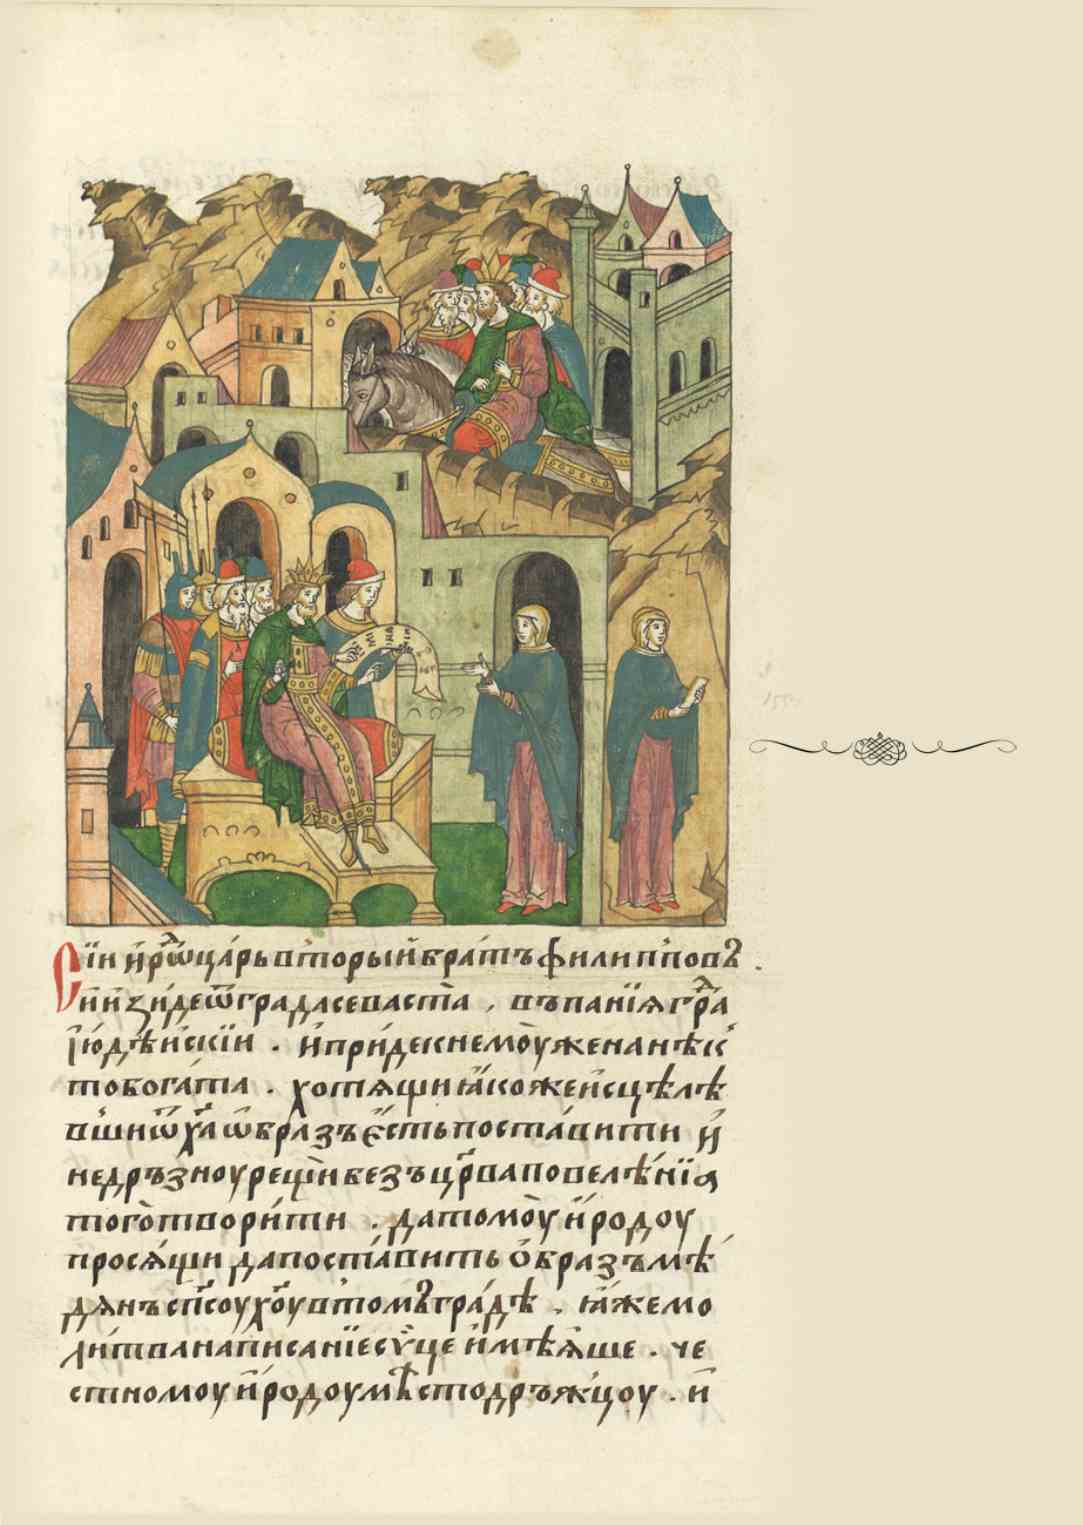 Сїи и҆рѡⷣ царь вторыи братъ филипповъ .
и и҆зиде ѿ града севастїа , въ панїѧ граⷣ
і҆юдѣискїи . и҆ приде к немоу жена нѣк
то богата . хотѧщи ꙗ҆коже и҆сцѣлѣ
вши ѿ хⷭ҇а ѡ҆бразъ є҆сть поставити и҆
не дръзноу рещи безъ црⷭ҇ва повелѣнїѧ
того творити . да томоу и҆родоу
просѧщи да поставить о҆бразъ мѣ
дѧнъ спⷭ҇соу хⷭ҇оу в томъ градѣ . ꙗ҆же мо
литва написанїе сѵце и҆мѣѧше . че
стномоу и҆родоу мѣстодръжцоу . и҆